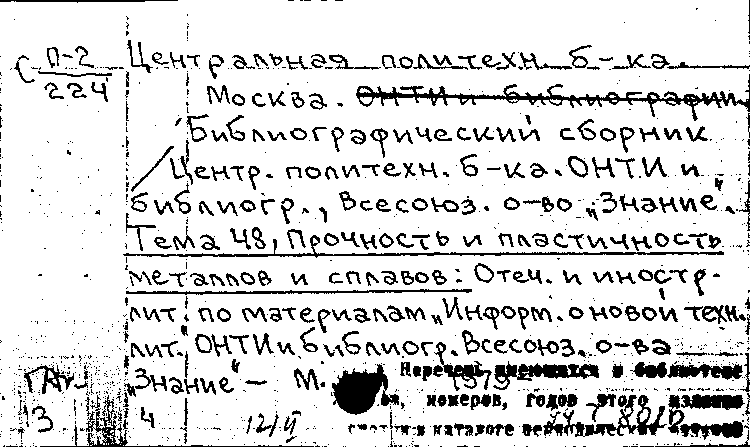 С П-2 Центральная политехн. б-ка.
224 Москва. ОНТИ и библиографии.
Библиографический сборник
Центр. политехн. б-ка. ОНТИ и
библиогр., Всесоюз. о-во „Знание".
Тема 48, Прочность и пластичность
металлов и сплавов: Отеч. и иностр.
лит. по материалам „Информ. о новой техн.
лит." ОНТИ и библиогр. Всесоюз. о-ва
„Знание" – М. 1979- Перечень имеющихся в библиотеке
номеров, годов этого издания
3 4 12/VI в каталоге периодических